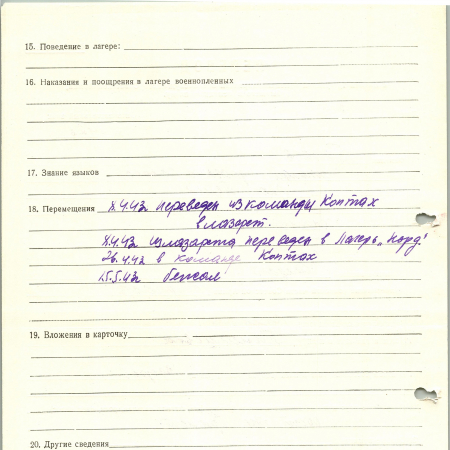 15. Поведение в лагере:
16. Наказания и поощрения в лагере военнопленных
17. Знание языков
18. Перемещения 8.4.43г переведен из команды Коптах
в лазарет.
из лазарета переведен в Лагерь „Норд"
26.4.43 в команде Коптах
15.5.43г бежал
19. Вложения в карточку
20. Другие сведения